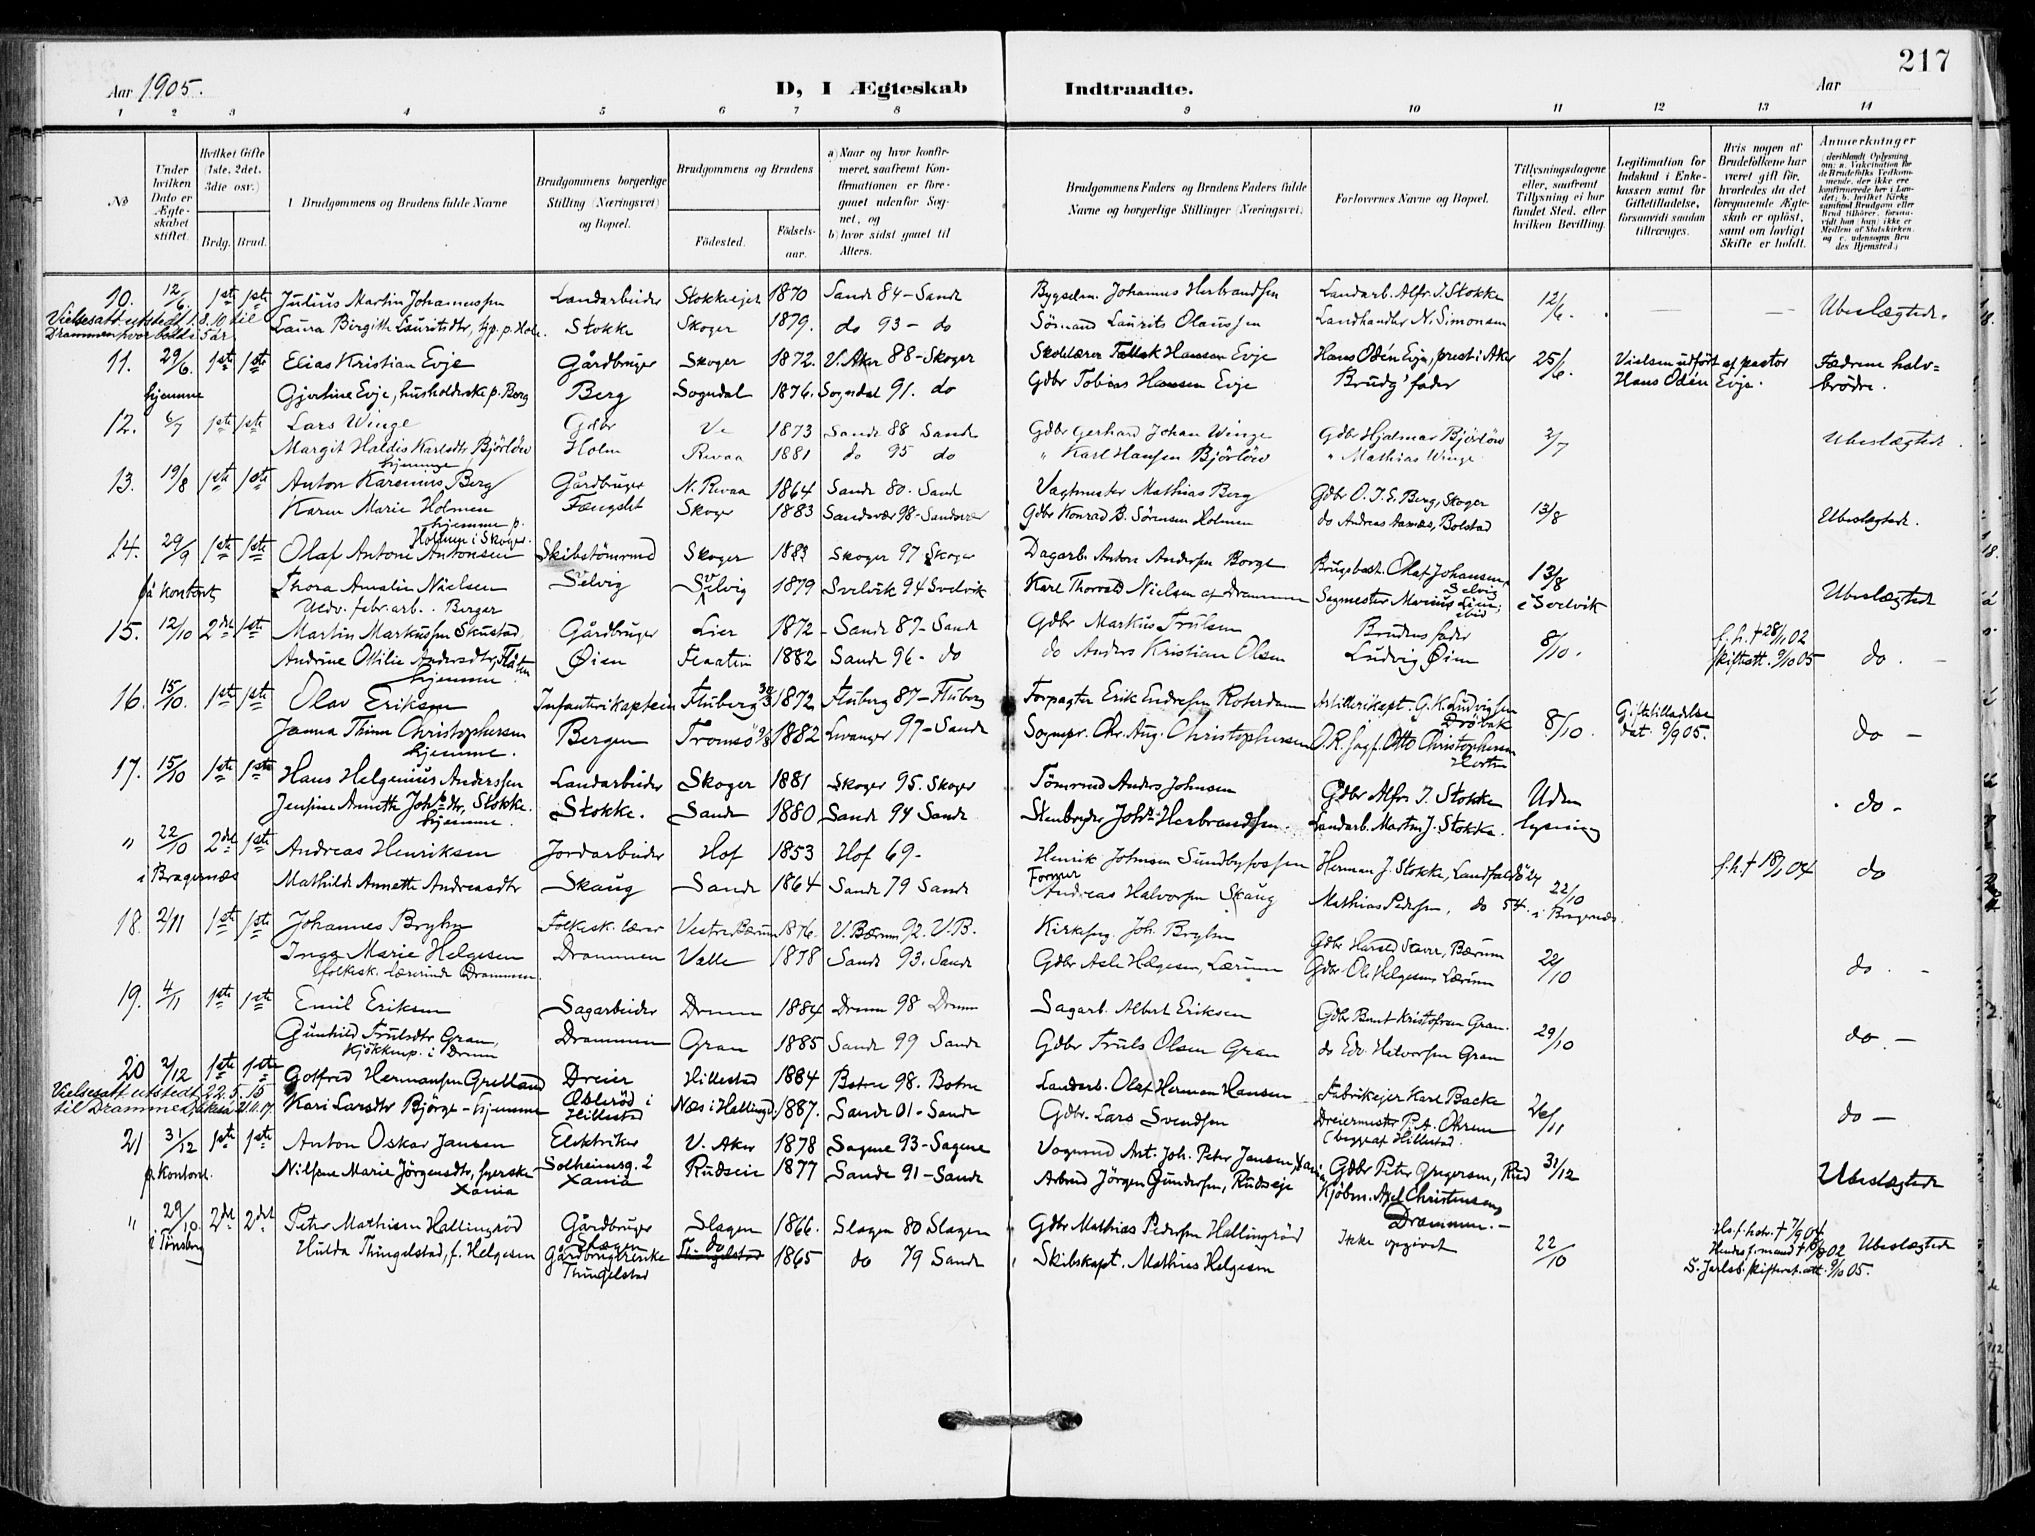 217
Aar 1905.
D, I Ægteskab Indtraadte.
Aar
1 2 3 4 5 6 7 8 9 10 11 12 13 14
No
Under hvilken Dato er Ægteskabet stiftet.
Hvilket Gifte (1ste, 2det, 3die osv.)
Brdg. Brud.
Brudgommens og Brudens fulde Navne
Brudgommens borgerlige Stilling (Næringsvei) og Bopæl.
Brudgommens og Brudens
Fødested. Fødselsaar.
a) Naar og hvor konfirmeret, saafremt Konfirmationen er foregaaet udenfor Sognet, og
b) hvor sidst gaaet til Alters.
Brudgommens Faders og Brudens Faders fulde Navne og borgerlige Stillinger (Næringsvei)
Forlovernes Navne og Bopæl.
Tillysningsdagene eller, saafremt Tillysning ei har fundet Sted, efter hvilken Bevilling.
Legitimation for Indskud i Enkekassen samt for Giftetilladelse, forsaavidt saadan tiltrænges.
Hvis nogen af Brudefolkene har været gift før, hvorledes da det foregaaende Ægteskab er opløst, samt om lovligt Skifte er holdt.
Anmærkninger
10. 12/6. 1ste 1ste Julius Martin Johannessen Landarbeider Stokkeejet 1870 Sande 84 - Sande Bygselm. Johannes Herbrandsen Landarb. Alfr. J. Stokke 12/6. Ubeslægtede.
Vielsesatt. utstedt 1.8.10 til
Laura Birgith Lauritsdtr, Stokke Skoger 1879. do 93 - do Sømand Laurits Olaussen Landhandler N. Simonsen
11. 29/6. 1ste 1ste Elias Kristian Evje Gårdbruger Skoger 1872. V. Aker 88 - Skoger Skolelærer Tallak Hansen Evje Hans Odén Evje, prest i Aker 25/6. Vielsen udført af pastor Fædrene halv=
hjemme Gjertine Evje, husholderske p. Berg Berg Sogndal 1876. Sogndal 91. do Gdbr Tobias Hansen Evje Brudg' fader Hans Odén Evje. brødre.
12. 6/7 1ste 1ste Lars Winge Gdbr Ve 1873 Sande 88 Sande Gdbr Gerhard Johan Winge Gdbr Hjalmar Bjørløw 2/7 Ubeslægtede.
Margit Haldis Karlsdtr Bjørløw Holm Revaa 1881 do 95 do " Karl Hansen Bjørløw " Mathias Winge
hjemme
13. 19/8 1ste 1ste Anton Karenius Berg Gårdbruger N. Revaa 1864 Sande 80. Sand Vagtmester Mathias Berg Gdbr O. J. E. Berg, Skoger 13/8 Ubeslægtede.
Karen Marie Holmen Fængslet Skoger 1883 Sandsvær 98 - Sandsvær Gdbr Konrad B. Sørensen Holmen do Andreas Aamås, Bolstad
hjemme p. Holmen i Skoger
14. 29/9 1ste 1ste Olaf Antoni Antonsen Skibstømrmd Skoger 1883 Skoger 97 Skoger Dagarb. Anton Andersen Borge Brugsbest. Olaf Johansen, Selvig 13/8 Ubeslægtede
på kontoret Thora Amalie Nielsen Selvig Selvig 1879 Svelvik 94 Svelvik Karl Thorvald Nielsen af Drammen Sagmester Marius Lien, ibid i Svelvik
Uedv. febr. arb. Berger
15. 12/10 2det 1ste Martin Markussen Skustad, Gårdbruger Lier 1872 - Sande 87 - Sande Gdbr Markus Trulsen Brudens fader 8/10. f. h. † 28/11 02 do. -
Andrine Otilie Andersdtr, Flåtten Øien 1882 Sande 96 - do do Anders Kristian Olsen Ludvig Øien skifteatt. 9/10 05
hjemme
16. 15/10. 1ste 1ste Olav Eriksen Infanterikaptein Fluberg 30/3 1872 Fluberg 87 - Fluberg Forpagter Erik Endresen Roterdam Artillerikapt. G. K. Ludvigsen Drøbak 8/10. Giftetilladelse dat. 9/9 05. do -
Janna Thinn Christophersen Bergen Tromsö 9/8 1882 Levanger 97 - Sande Sognepr. Chr. Aug. Christophersen O. R. sagf. Otto Christophersen Horten
hjemme.
17. 15/10 1ste 1ste Hans Helgenius Anderssen Landarbeider Skoger 1881 Skoger 95. Skoger Tömrmd Anders Johnsen Gdbr Alfr. J. Stokke Uden do -
Jensine Annette Johsdtr, Stokke. Stokke. Sande 1880 Sande 94 Sande Stenbryder Johs Herbrandsen. Landarb. Martin J. Stokke. lysning
hjemme.
" 22/10 2det 1ste Andreas Henriksen Jordarbeider Hof 1853 Hof 69 - Henrik Johnsen Sundbyfossen Herman J. Stokke, Landfaldö 24 22/10 f. h. † 18/1 04 do
i Bragernæs Mathilde Annette Andreasdtr Skaug Sande 1864 Sande 79 Sande Former Andreas Halvorsen Skaug Mathias Pedersen, do 54. i Bragernæs.
18. 2/11 1ste 1ste Johannes Bryhn Folkesk. lærer Vestre Bærum 1876. V. Bærum 92. V. B. Kirkesng. Joh. Bryhn Gdbr Harald Staver, Bærum 22/10 do. -
Inga Marie Helgesen Drammen Valle 1878 Sande 93. Sande Gdbr Asle Helgesen, Lærum Gdbr Ole Helgesen Lærum
folkesk. lærerinde Drammen.
19. 4/11 1ste 1ste Emil Eriksen Sagarbeider Dramm 1884 Dramm 98 Dramm Sagarb. Albert Eriksen Gdbr Bent Kristofersen Gran. 29/10 do. -
Gunhild Trulsdtr Gran, Drammen Gran 1885 Sande 99 Sande Gdbr Truls Olsen Gran do Edv. Halvorsen Gran
Kjökkenp. i Dramm
20 2/12 1ste 1ste Gotfred Hermansen Grelland Dreier Hillestad 1884 Botne 98. Botne Landarb. Olaf Herman Hansen Fabrikejer Karl Backe 26/11 do -
Vielsesatt utstedt 22.5.15
til Drammen, Kari Larsdtr Bjørge - hjemme Österöd i Hillestad Næs i Hallingd. 1887. Sande 01 - Sande Gdbr. Lars Svendsen Dreiermester P. A. Ohren (begge af Hillestad.
21 31/12 1ste 1ste Anton Oskar Jansen Elektriker V. Aker 1878 Sagene 93 - Sagene Vognmd Ant. Joh. Peter Jansen, Xania Gdbr Peter Jørgensen, Rud 31/12 Ubeslægtede
på kontoret. Nilsine Marie Jörgensdtr, syerske Xania Solheimsg. 2 Xania Rudseie 1877 Sande 91 - Sande Arbmd Jörgen Gundersen, Rudseje Kjöbm. Axel Christensen, Drammen. -
" 29/10. 2det 2det Peter Mathisen Hallingröd Gårdbruger Slagen Slagen 1866. Slagen 80 Slagen Gdbr Mathias Pedersen Hallingröd Ikke opgivet 22/10 Hs. f. hstr. † 7/9 04
i Tønsberg Hulda Thingelstad, f. Helgesen Gårdbrugerenke Thingelstad do 1865 do 79 Sande Skibskapt. Mathias Helgesen Hendes f. mand † 02 Ubeslægtede
S. Jarlsb. skifteret att. 9/10 05.